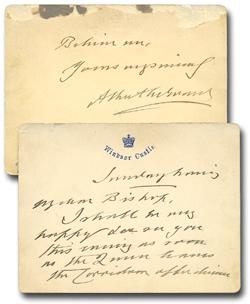 Believe me,
Yours
Windsor Castle.
Sunday
My dear Bishop,
I shall be very
happy to see you
this evening as soon
as the Queen leaves
the Corridor after dinner